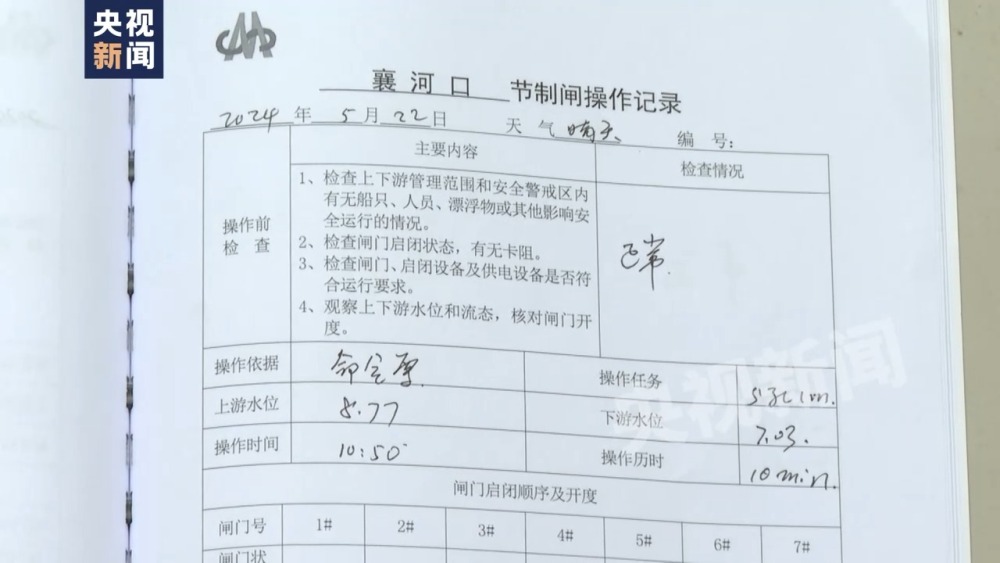 央视
新闻
襄河口 节制闸操作记录
2024 年 5 月 22 日 天气 晴天 编号：
主要内容 检查情况
操作前
检 查
1、检查上下游管理范围和安全警戒区内
有无船只、人员、漂浮物或其他影响安
全运行的情况。
2、检查闸门启闭状态，有无卡阻。
3、检查闸门、启闭设备及供电设备是否符
合运行要求。
4、观察上下游水位和流态，核对闸门开
度。
正常
操作依据 命令票 操作任务 5孔1m.
上游水位 8.77 下游水位 7.03.
操作时间 10:50 操作历时 10min.
闸门启闭顺序及开度
闸门号 1# 2# 3# 4# 5# 6# 7#
闸门状
央视新闻